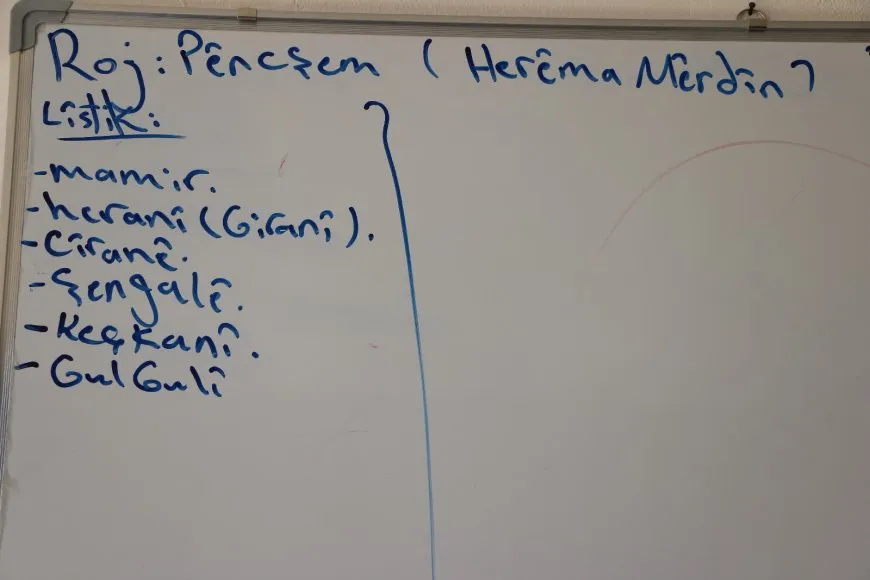 Roj: Pêncşem ( Herêma Mêrdîn )
Lîstik:
- mamir.
- heranî (Giranî).
- Cîranê.
- Şengalê.
- Keçkanî.
- GulGulî